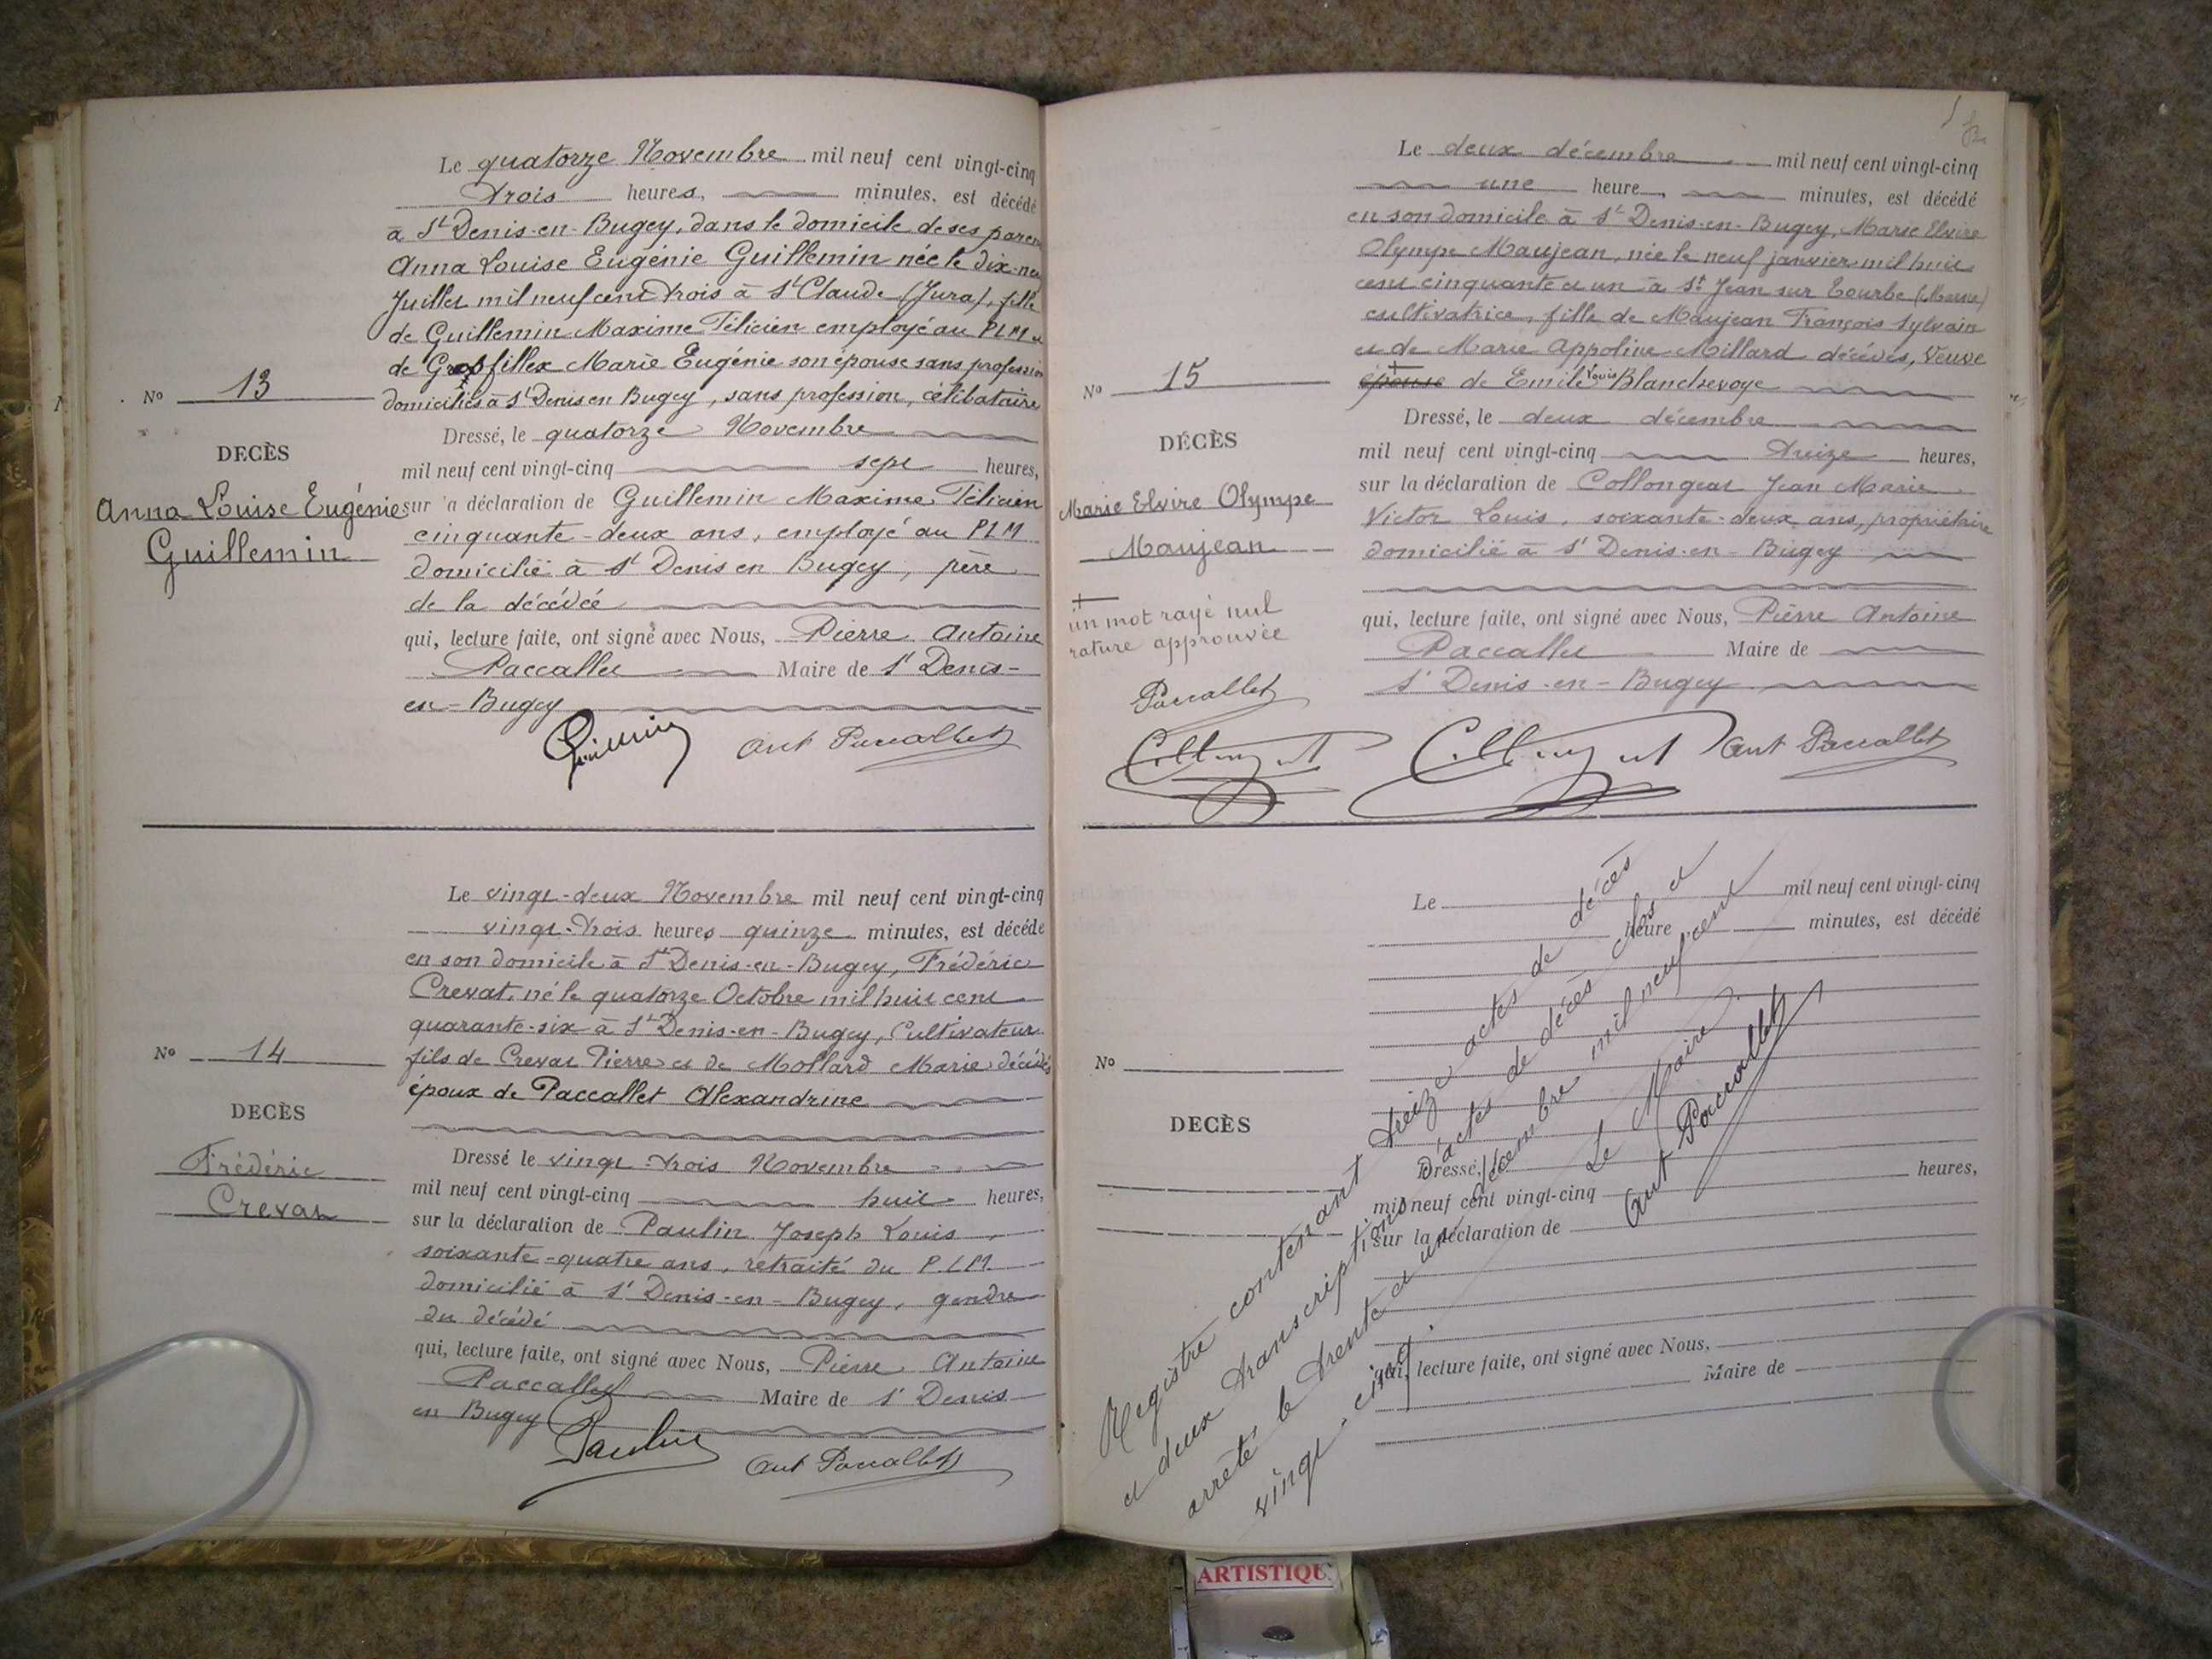 Le quatorze Novembre mil neuf cent vingt-cinq
trois heures, minutes, est décédé
à St Denis-en-Bugey, dans le domicile de ses paren
Anna Louise Eugénie Guillemin née le dix-neu
Juillet mil neuf cent trois à St Claude (Jura), fille
de Guillemin Maxime Félicien employé au PLM et
de Grosfillex Marie Eugénie son épouse sans profession
domiciliés à St Denis en Bugey, sans profession, célibataire
No 13
DECÈS
Anna Louise Eugénie
Guillemin
Dressé, le quatorze Novembre
mil neuf cent vingt-cinq sept heures,
sur la déclaration de Guillemin Maxime Félicien
cinquante-deux ans, employé au PLM
domicilié à St Denis en Bugey, père
de la décédée
qui, lecture faite, ont signé avec Nous, Pierre Antoine
Paccallet Maire de St Denis-
en-Bugey
Guillemin Ant Paccallet
Le vingt-deux Novembre mil neuf cent vingt-cinq
vingt-trois heures quinze minutes, est décédé
en son domicile à St Denis-en-Bugey, Frédéric
Crevat, né le quatorze Octobre mil huit cent
quarante-six à St Denis-en-Bugey, Cultivateur
fils de Crevat Pierre et de Mollard Marie décédés
époux de Paccallet Alexandrine
No 14
DECÈS
Frédéric
Crevat
Dressé le vingt-trois Novembre
mil neuf cent vingt-cinq huit heures,
sur la déclaration de Paulin Joseph Louis,
soixante-quatre ans, retraité du P.L.M.
domicilié à St Denis-en-Bugey, gendre
du décédé
qui, lecture faite, ont signé avec Nous, Pierre Antoine
Paccallet Maire de St Denis
en Bugey
Paulin Ant Paccallet
Le deux décembre mil neuf cent vingt-cinq
une heure, minutes, est décédé
en son domicile à St Denis-en-Bugey, Marie Elvire
Olympe Maujean, née le neuf janvier mil huit
cent cinquante et un à St Jean sur Tourbe (Marne)
cultivatrice, fille de Maujean François Sylvain
et de Marie Appoline Millard décédés, Veuve
épouse de Emile Louis Blanchevoye
No 15
DÉCÈS
Marie Elvire Olympe
Maujean
un mot rayé nul
rature approuvée
Paccallet
Collongeat
Dressé, le deux décembre
mil neuf cent vingt-cinq treize heures,
sur la déclaration de Collongeat Jean Marie
Victor Louis, soixante-deux ans, propriétaire
domicilié à St Denis-en-Bugey
qui, lecture faite, ont signé avec Nous, Pierre Antoine
Paccallet Maire de
St Denis-en-Bugey
Collongeat Ant Paccallet
Le mil neuf cent vingt-cinq
heure minutes, est décédé
No
DECÈS
Dressé,
mil neuf cent vingt-cinq heures,
sur la déclaration de
qui, lecture faite, ont signé avec Nous,
Maire de
Registre contenant treize actes de décès
et deux transcriptions d'actes de décès clos et
arrêté le trente et un décembre mil neuf cent
vingt-cinq.
Le Maire
Ant Paccallet
ARTISTIQU